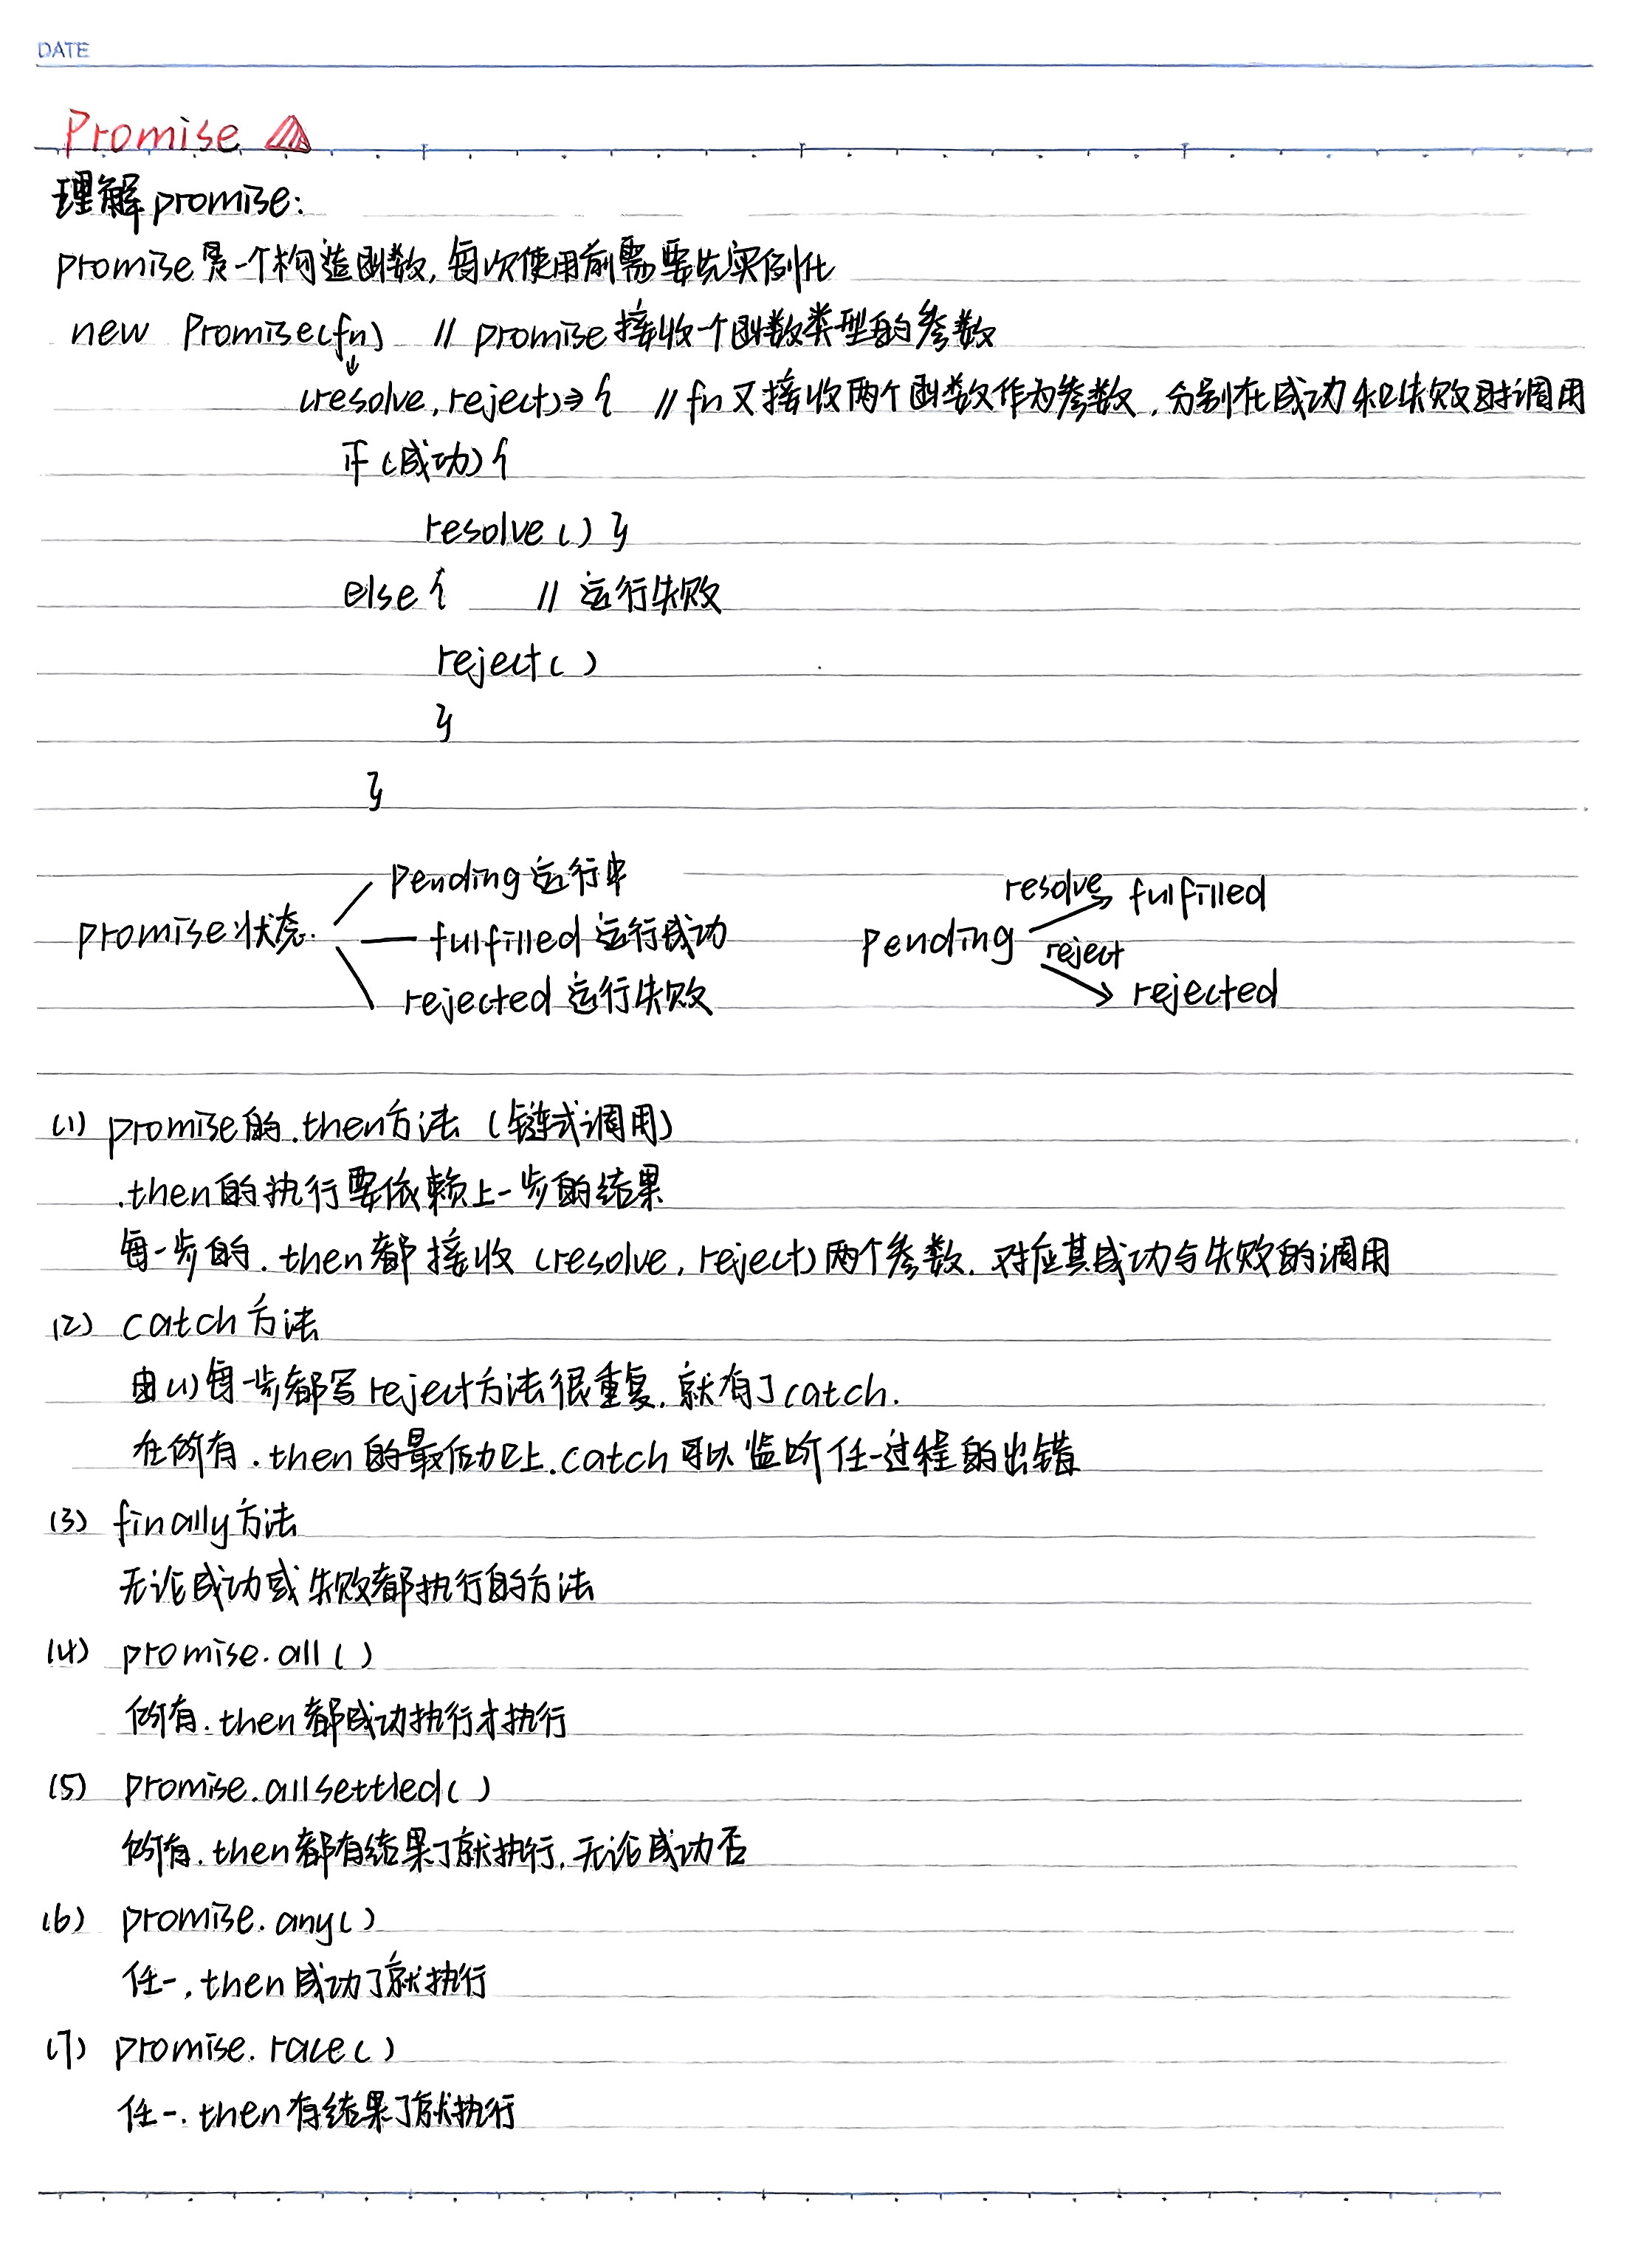 DATE
Promise
理解promise:
promise是一个构造函数,每次使用前需要先实例化
new Promise(fn) // promise接收一个函数类型的参数
(resolve,reject)=>{ // fn又接收两个函数作为参数,分别在成功和失败时调用
if (成功) {
resolve() }
else { // 运行失败
reject()
}
}
promise状态.
pending 运行中
fulfilled 运行成功
rejected 运行失败
pending
resolve fulfilled
reject
rejected
(1) promise的.then方法 (链式调用)
.then的执行要依赖上一步的结果
每一步的.then都接收 (resolve,reject)两个参数.对应其成功与失败的调用
(2) catch方法
由(1)每一步都写reject方法很重复.就有了catch.
在所有.then的最后加上.catch可以监听任一过程的出错
(3) finally方法
无论成功或失败都执行的方法
(4) promise.all()
所有.then都成功执行才执行
(5) promise.allsettled()
所有.then都有结果了就执行,无论成功否
(6) promise.any()
任一.then成功了就执行
(7) promise.race()
任一.then有结果了就执行